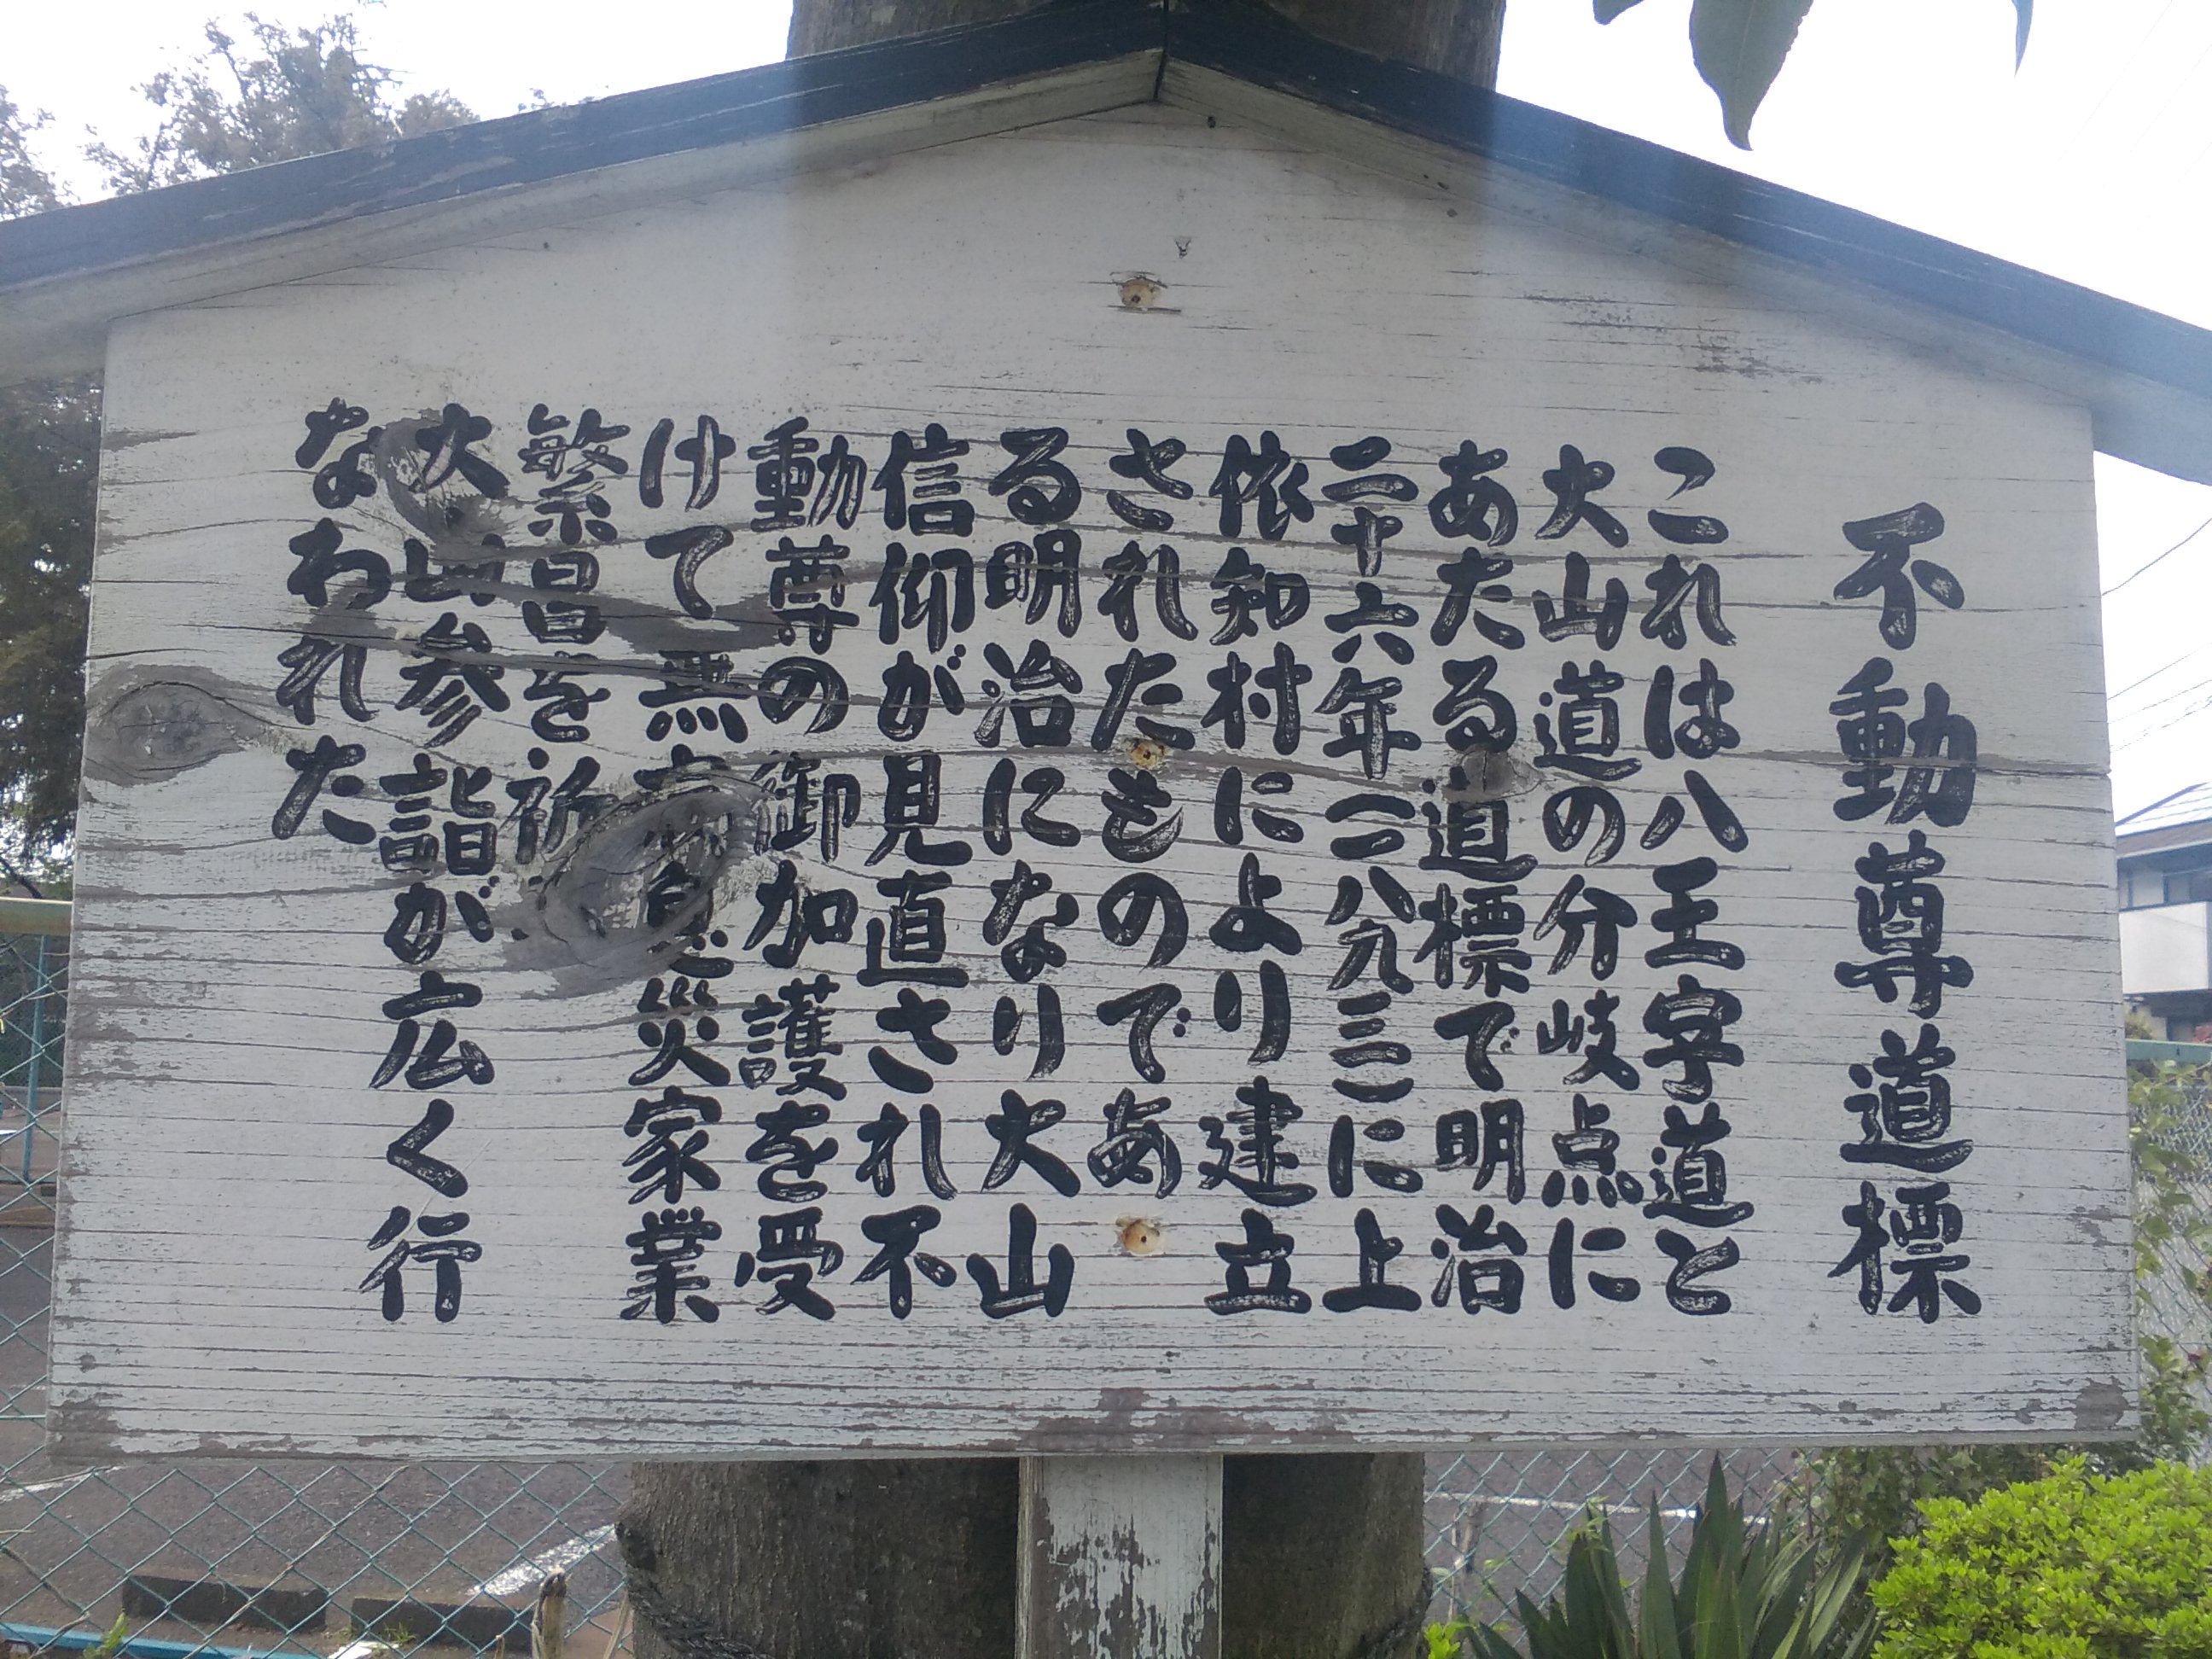 不動尊道標
これは八王字道と
大山道の分岐点に
あたる道標で明治
二十六年(一八九三)に上
依知村により建立
されたものであ
る明治になり大山
信仰が見直され不
動尊の御加護を受
けて無病息災家業
繁昌を祈
大山参詣が広く行
なわれた